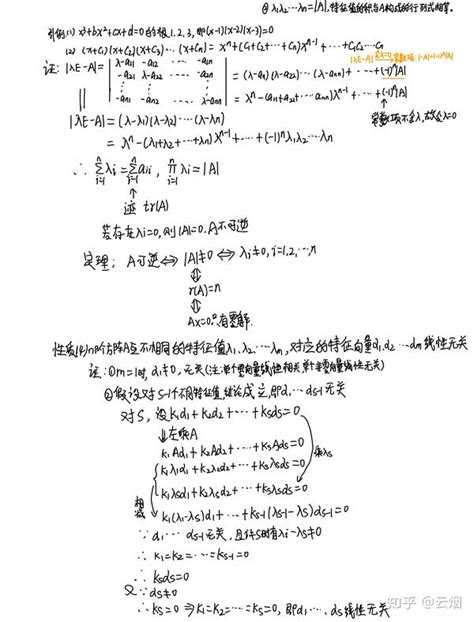 ② λ₁λ₂…λn=|A|,特征值的积与A构成的行列式相等。
引例(1) x³+bx²+cx+d=0的根1,2,3,即(x-1)(x-2)(x-3)=0
(2) (x+C₁)(x+C₂)(x+C₃)…(x+Cn)=xⁿ+(C₁+C₂+…+Cn)xⁿ⁻¹+…+C₁C₂…Cn
|λE-A| 令λ=0 常数项:|-A|=(-1)ⁿ|A|
证: |λE-A|= | λ-a₁₁ -a₁₂ … -a₁n | = (λ-a₁₁)(λ-a₂₂)…(λ-ann)+…+(-1)ⁿ|A|
| -a₂₁ λ-a₂₂ … -a₂n |
| ⋮ ⋮ ⋮ | = λⁿ-(a₁₁+a₂₂+…ann)λⁿ⁻¹+…+(-1)ⁿ|A|
| -an₁ -an₂ … λ-ann |
常数项不含λ,故令λ=0
|λE-A|=(λ-λ₁)(λ-λ₂)…(λ-λn)
=λⁿ-(λ₁+λ₂+…+λn)λⁿ⁻¹+…+(-1)ⁿλ₁λ₂…λn
∴ Σⁿᵢ₌₁λi=Σⁿᵢ₌₁aii, Πⁿᵢ₌₁λi=|A|
↑
迹 tr(A)
若存在λi=0,则|A|=0,A不可逆
定理: A可逆⇔|A|≠0⇔λi≠0,i=1,2,…,n
⇕
r(A)=n
⇕
Ax=0只有零解
性质(4)n阶方阵A互不相同的特征值λ₁,λ₂…λn,对应的特征向量α₁,α₂…αn线性无关
证:①m=1时,α₁≠0,无关(注:单个零向量线性相关,单个非零向量线性无关)
②假设对S-1个不同特征值,结论成立,即α₁…αs-1无关
对S,设k₁α₁+k₂α₂+…+ksαs=0
⇓左乘A
k₁Aα₁+k₂Aα₂+…+ksAαs=0
乘λs
k₁λ₁α₁+k₂λ₂α₂+…+ksλsαs=0
k₁λsα₁+k₂λsα₂+…+ksλsαs=0
相减
k₁(λ₁-λs)α₁+…+ks-1(λs-1-λs)αs-1=0
∵α₁…αs-1无关,且λi-λs≠0
∴k₁=k₂=…=ks-1=0
∴ksαs=0
又∵αs≠0
∴ks=0⇒k₁=k₂=…=ks=0,即α₁…αs线性无关
知乎 @云烟